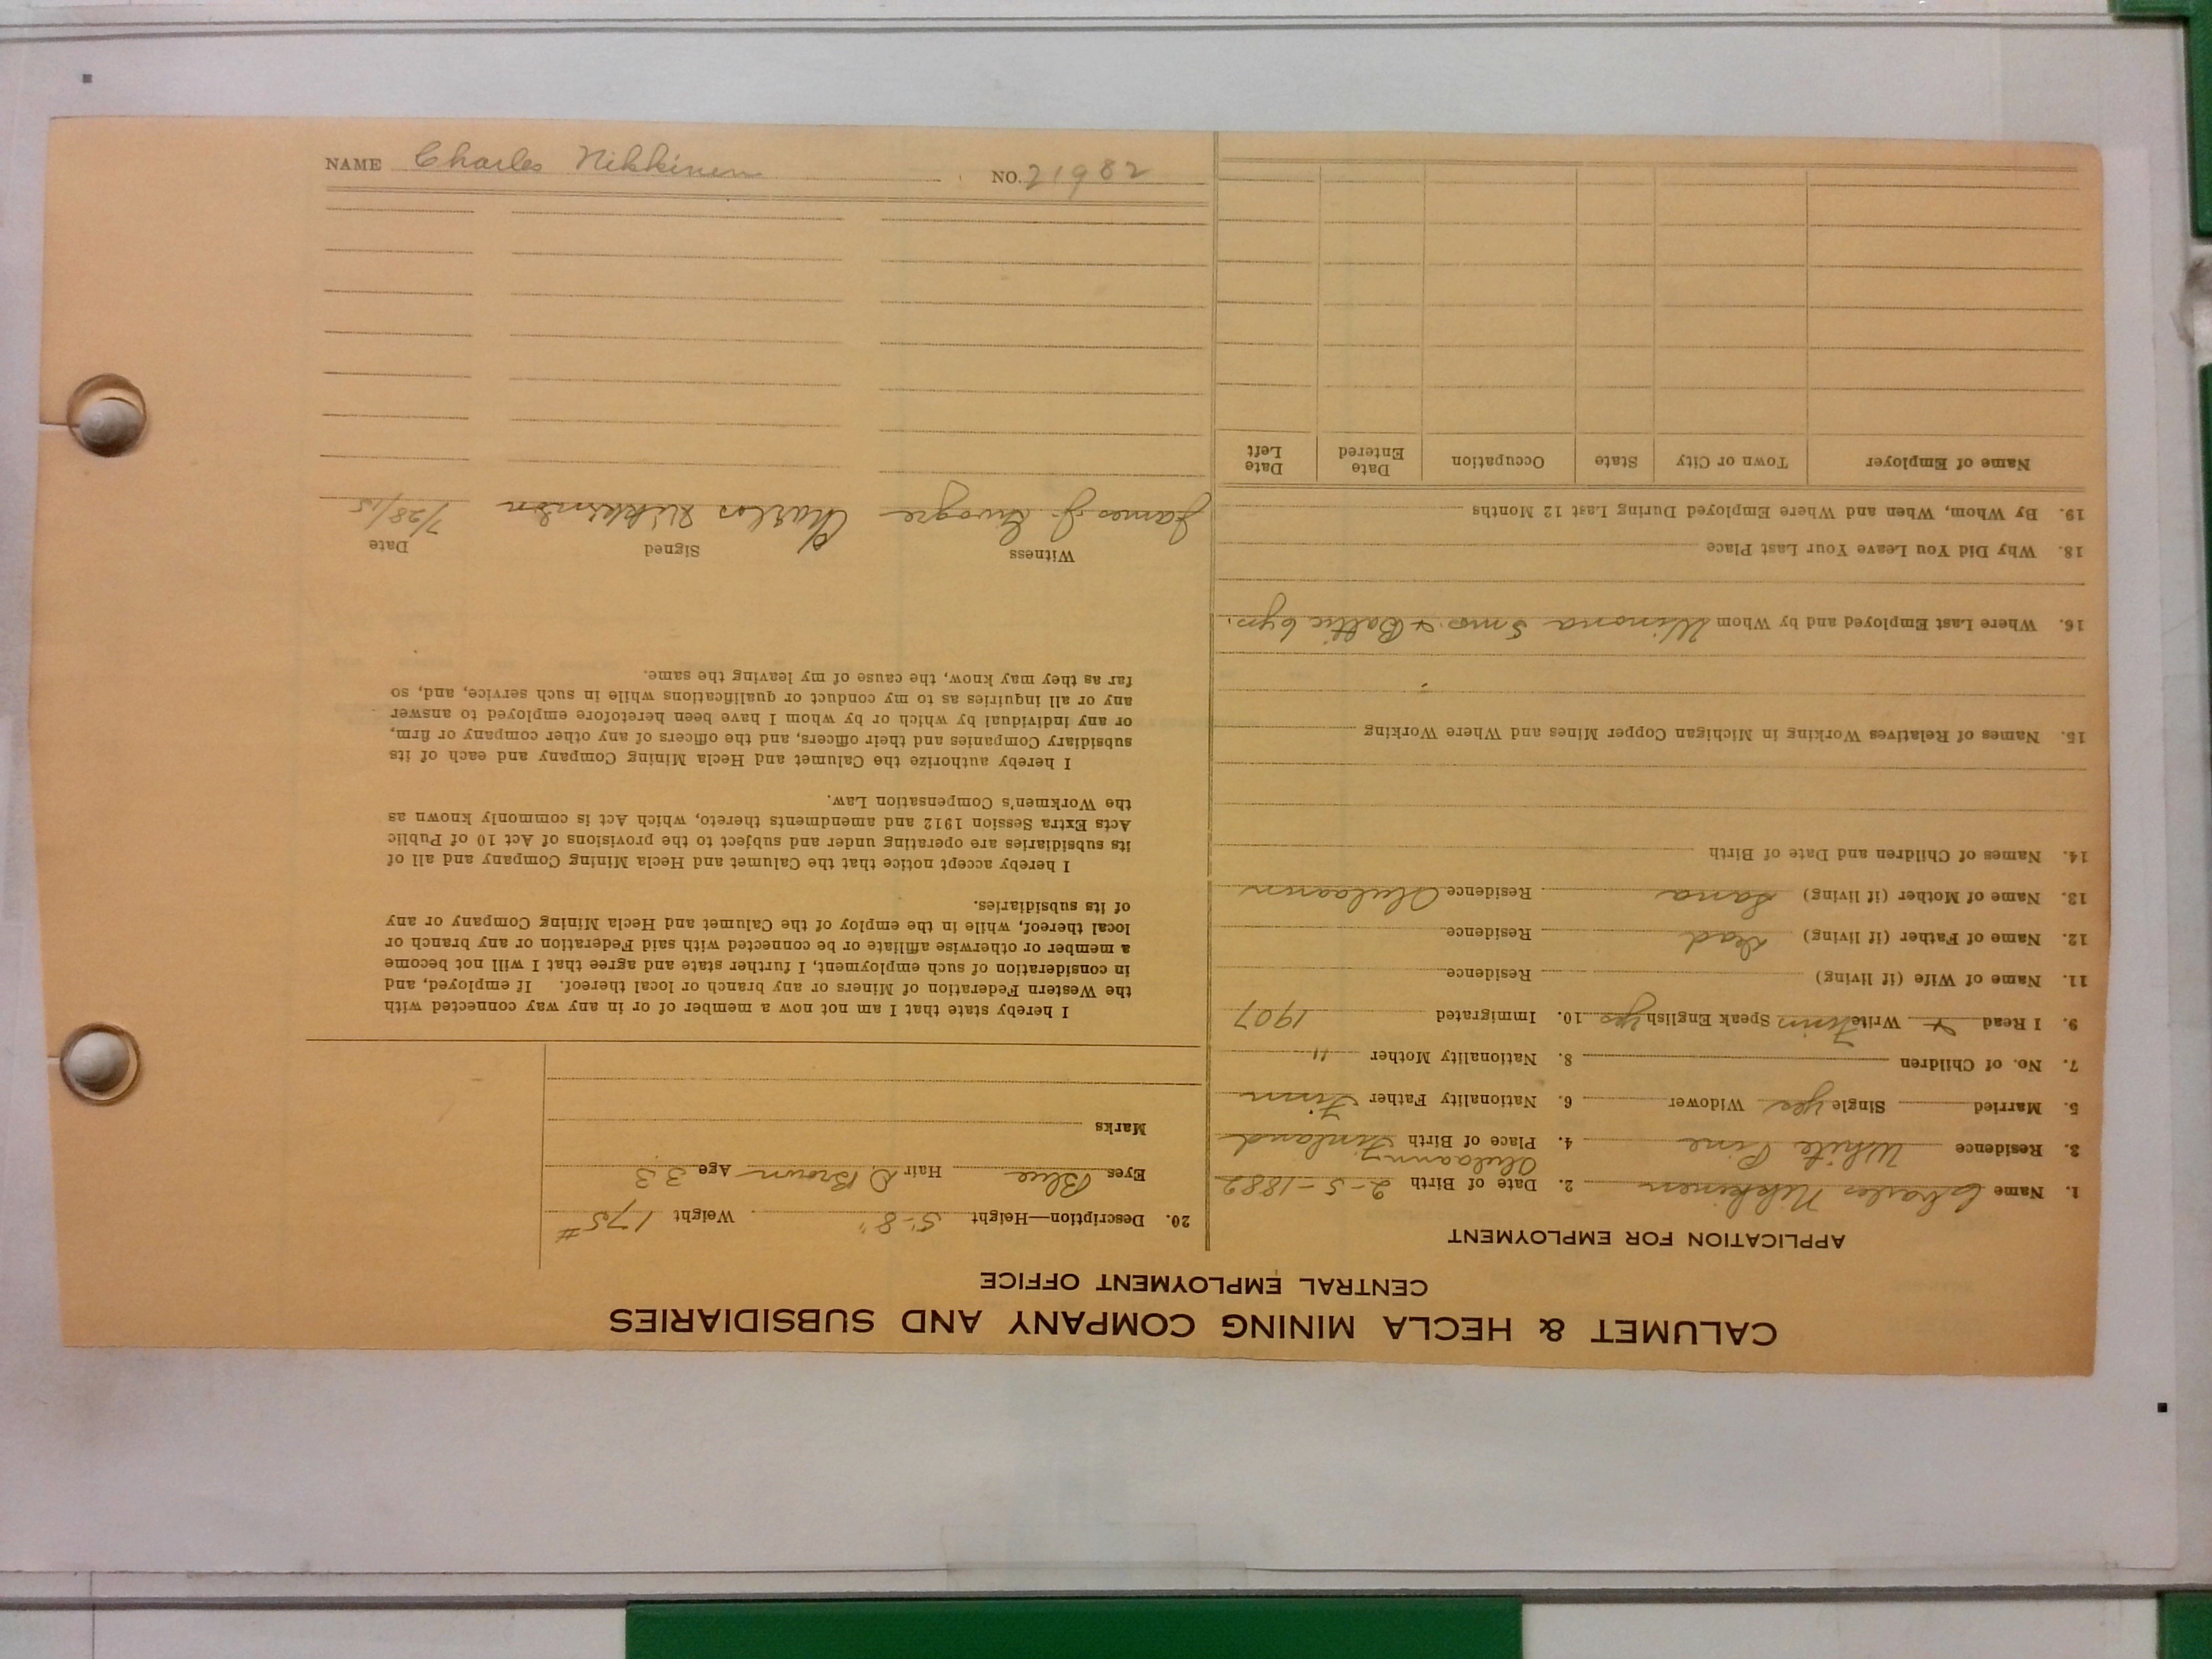 CALUMET & HECLA MINING COMPANY AND SUBSIDIARIES
CENTRAL EMPLOYMENT OFFICE
APPLICATION FOR EMPLOYMENT
1. Name Charles Nikkinen 2. Date of Birth 2-5-1882
3. Residence White Pine 4. Place of Birth Finland
5. Married Single yes Widower 6. Nationality Father Finn
7. No. of Children 8. Nationality Mother "
9. I Read & Write Finn Speak English yes 10. Immigrated 1907
11. Name of Wife (if living) Residence
12. Name of Father (if living) Dead Residence
13. Name of Mother (if living) Residence
14. Names of Children and Date of Birth
15. Names of Relatives Working in Michigan Copper Mines and Where Working
16. Where Last Employed and by Whom Winona 5 mos & Baltic 6 yrs.
18. Why Did You Leave Your Last Place
19. By Whom, When and Where Employed During Last 12 Months
Name of Employer Town or City State Occupation Date Entered Date Left
20. Description—Height 5-8" Weight 175#
Eyes Blue Hair D Brown Age 33
Marks
I hereby state that I am not now a member of or in any way connected with
the Western Federation of Miners or any branch or local thereof. If employed, and
in consideration of such employment, I further state and agree that I will not become
a member or otherwise affiliate or be connected with said Federation or any branch or
local thereof, while in the employ of the Calumet and Hecla Mining Company or any
of its subsidiaries.
I hereby accept notice that the Calumet and Hecla Mining Company and all of
its subsidiaries are operating under and subject to the provisions of Act 10 of Public
Acts Extra Session 1912 and amendments thereto, which Act is commonly known as
the Workmen's Compensation Law.
I hereby authorize the Calumet and Hecla Mining Company and each of its
subsidiary Companies and their officers, and the officers of any other company or firm,
or any individual by which or by whom I have been heretofore employed to answer
any or all inquiries as to my conduct or qualifications while in such service, and, so
far as they may know, the cause of my leaving the same.
Witness Signed Date
James J. Charles 7/28/15
NAME Charles Nikkinen NO. 21982